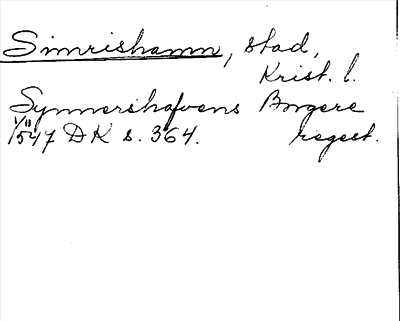 Simrishamn, stad,
Krist. l.
Symmershafvens Borgere
1/11 1547 DK s. 364. regest.